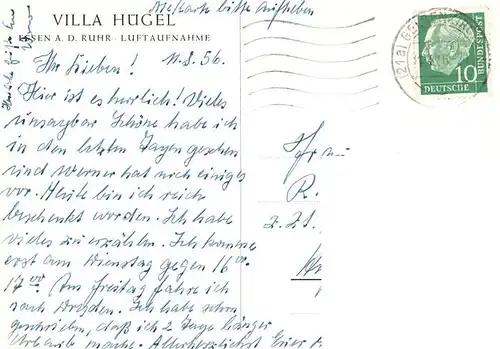 Diese Karte bitte aufheben
VILLA HÜGEL
ESSEN A. D. RUHR · LUFTAUFNAHME
11.8.56.
Ihr Lieben!
Hier ist es herrlich! Vieles
unsagbar Schöne habe ich
in den letzten Tagen gesehen
und Werner hat noch einiges
vor. Heute bin ich reich
beschenkt worden. Ich habe
vieles zu erzählen. Ich komme
erst am Dienstag gegen 16 00
17 00 Am Freitag fahre ich
nach Dresden. Ich habe schon
geschrieben, daß ich 2 Tage länger
Urlaub mache. Allerherzlichst Euer
Herzliche Grüße
Frau
R.
z. Zt.
(21a)
10
DEUTSCHE
BUNDESPOST